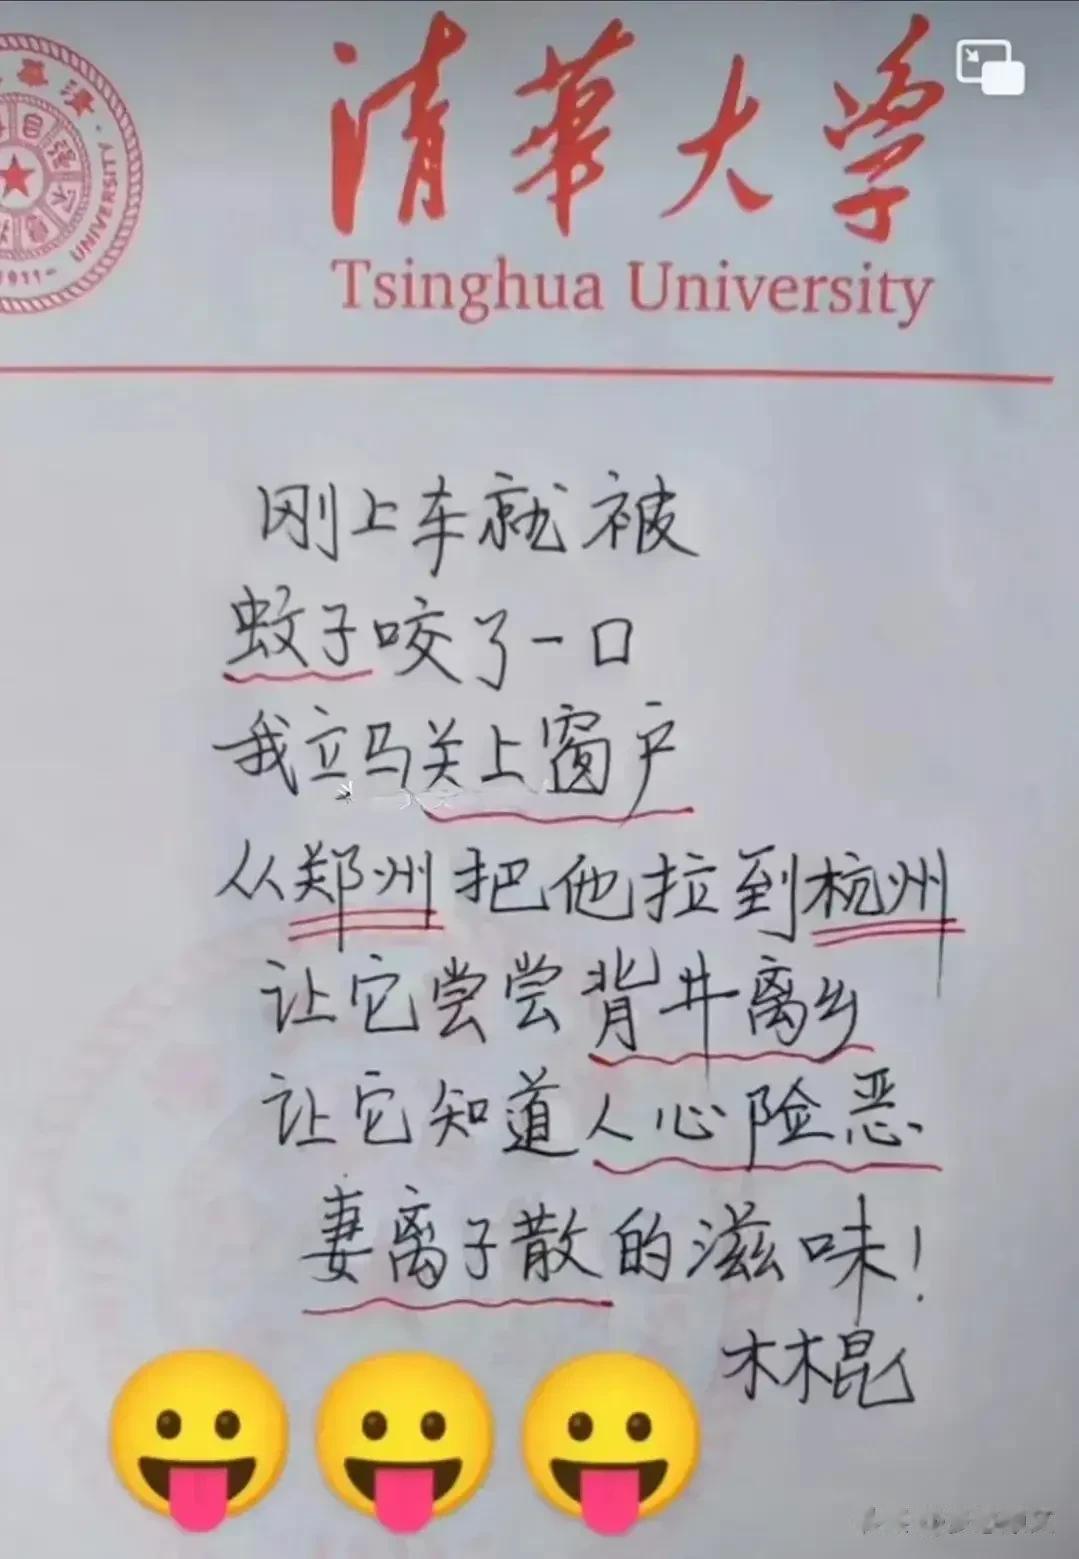 清華大学
Tsinghua University
UNIVERSITY
1911
刚上车就被
蚊子咬了一口
我立马关上窗户
从郑州把他拉到杭州
让它尝尝背井离乡
让它知道人心险恶
妻离子散的滋味！
木木昆